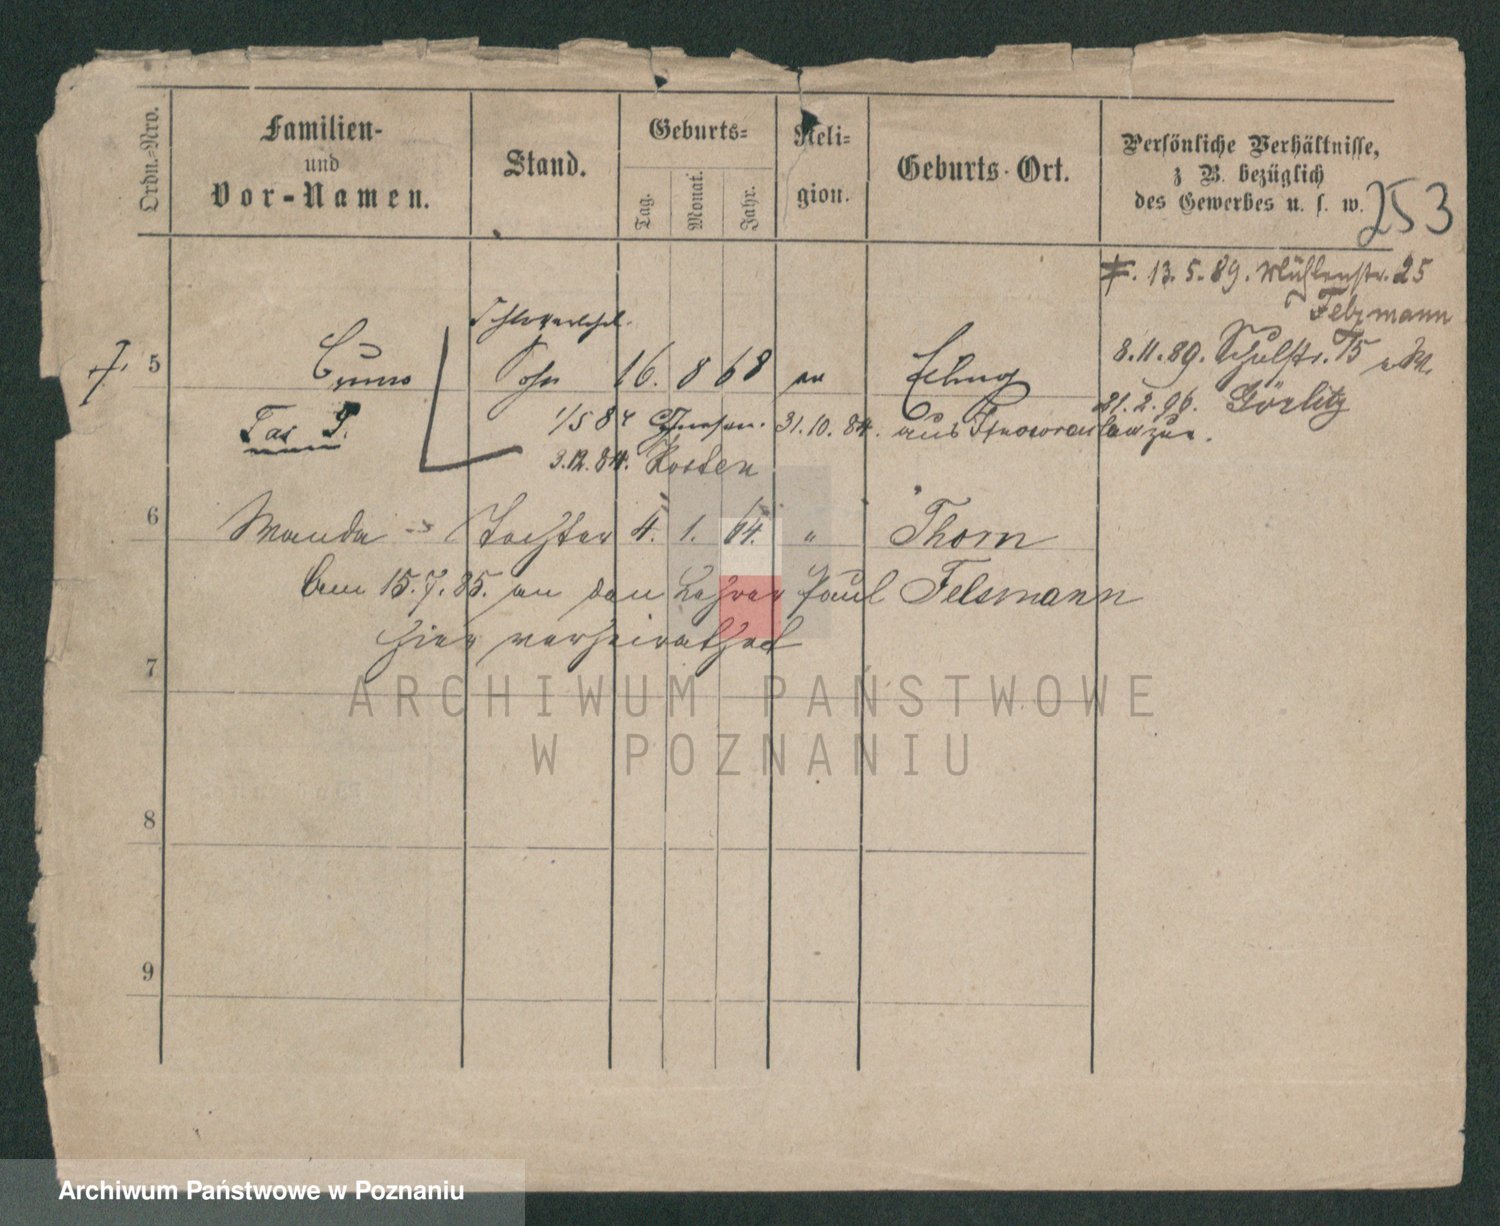 Ordn.-Nro.
Familien-
und
Vor-Namen.
Stand.
Geburts-
Tag.
Monat.
Jahr.
Reli-
gion.
Geburts-Ort.
Persönliche Verhältnisse,
z B. bezüglich
des Gewerbes u. s. w.
253
13.5.89. Mühlenstr. 25
Felzmann
8.11.89. Schulstr. 15
21.2.96. Görlitz
5 Cuno Sohn 16. 8 68 ev Elbing
1/5 84 Gnesen. 31.10.84. aus Inowrazlaw zur.
3.12.84. Kosten
6 Wanda Tochter 4. 1. 64. " Thorn
Am 15.7.85. an den Lehrer Paul Felsmann
hier verheirathet
7
8
9
ARCHIWUM PAŃSTWOWE
W POZNANIU
Archiwum Państwowe w Poznaniu